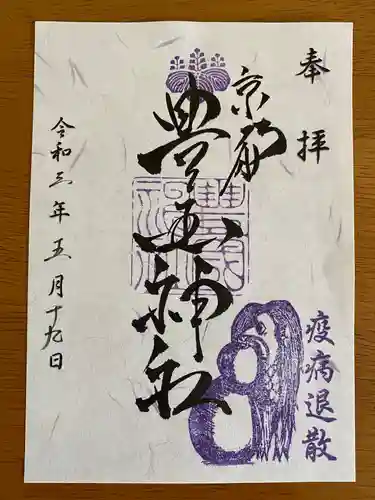 奉拝
京都
豊国神社
疫病退散
令和三年五月十九日